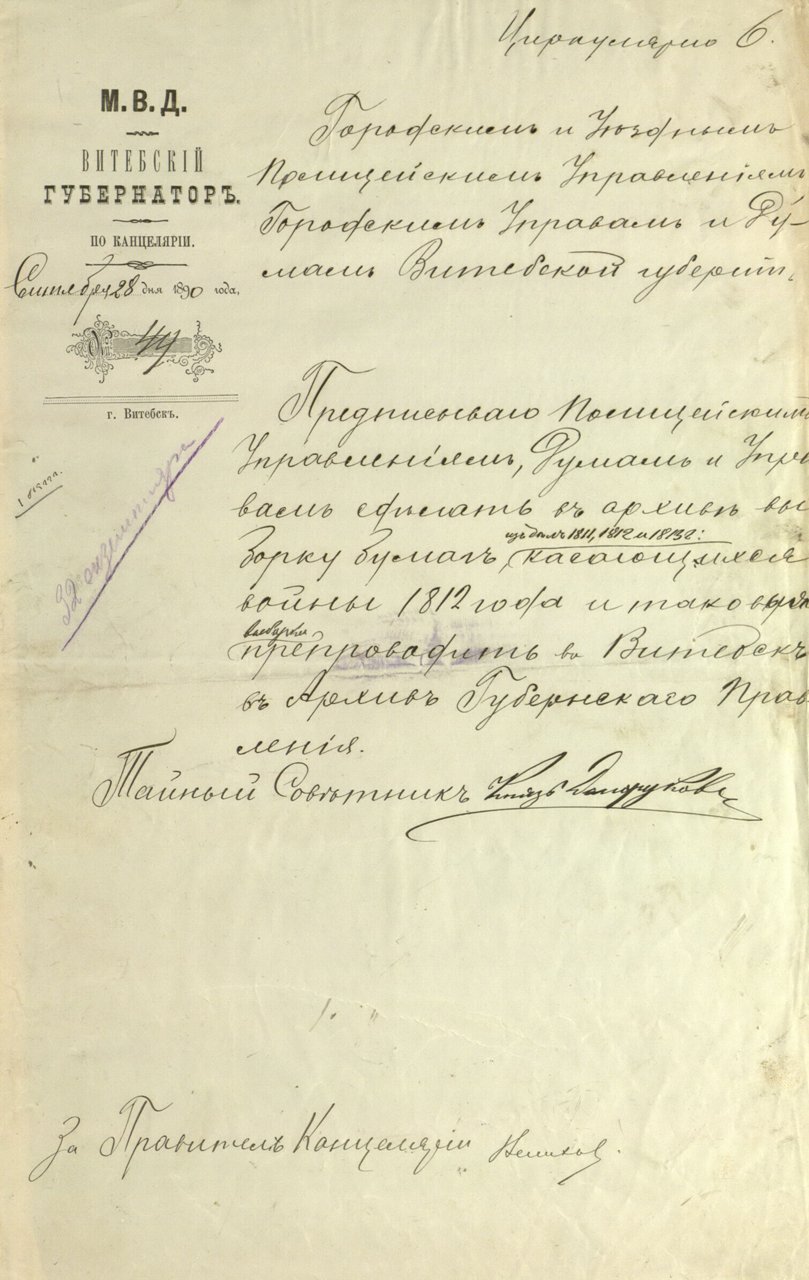 Циркулярно 6.
М. В. Д.
ВИТЕБСКІЙ
ГУБЕРНАТОРЪ.
ПО КАНЦЕЛЯРІИ.
Сентября 28 дня 1890 года,
№ 44
г. Витебскъ.
Городскимъ и Уѣзднымъ
Полицейскимъ Управленіямъ
Городскимъ Управамъ и Ду-
мамъ Витебской губерніи.
Предписываю Полицейскимъ
Управленіямъ, Думамъ и Упра
вамъ сдѣлать въ архивѣ вы
изъ дѣлъ 1811, 1812 и 1813 г:
борку бумагъ, касающихся
войны 1812 года и таковыя
выборки
препроводить въ Витебскъ
въ Архивъ Губернскаго Прав
ленія.
Тайный Совѣтникъ Князь Долгоруковъ
За Правитель Канцеляріи